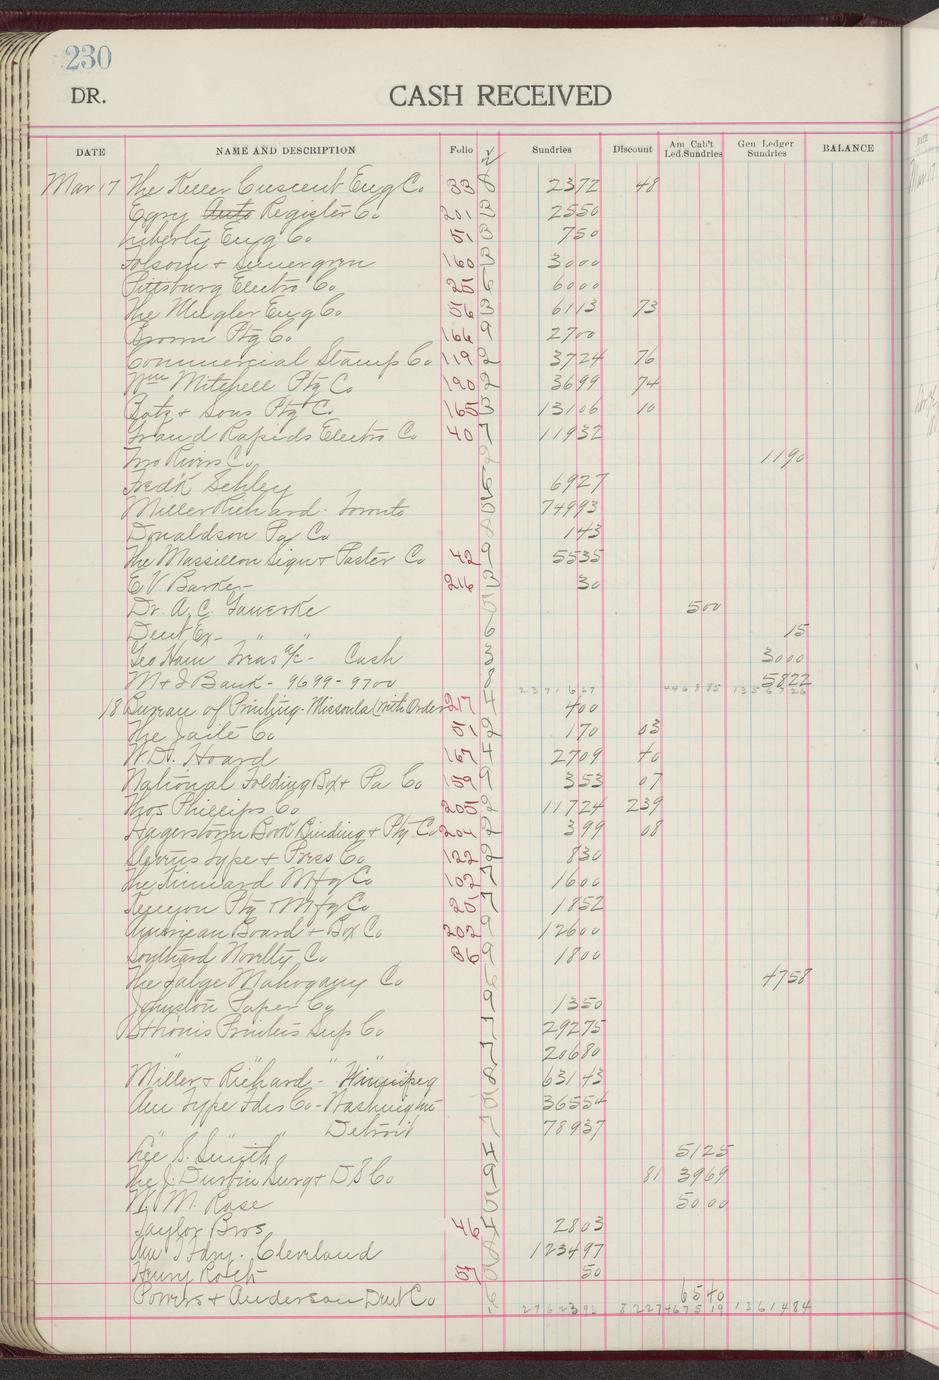 230
DR.
CASH RECEIVED
DATE NAME AND DESCRIPTION Folio Sundries Discount Am Cab't Led.Sundries Gen Ledger Sundries BALANCE
Mar 17 The Keller Crescent Eng Co. 33 8 2372 48
Egry Auto Register Co. 201 3 2550
Liberty Eng Co 51 3 750
Folsom + Sunergren 160 3 3000
Pittsburg Electro Co. 25 5 6000
The Mugler Eng Co. 56 3 6113 73
Brown Ptg Co. 166 9 2700
Commercial Stamp Co 119 2 3724 76
Wm Mitchell Ptg Co 190 2 3699 74
Batz + Sons Ptg Co. 165 3 13106 10
Grand Rapids Electro Co 40 7 11932
Two Rivers Co. 2 1190
Fredk Schley 5 6927
Miller Richard - Toronto 74993
Donaldson Pa Co 8 143
The Massillon Sign + Poster Co 42 9 5535
E V Barker 216 3 30
Dr. A. C. 500
Dent Ex - " " 6 15
Geo Ham Treas a/c - Cash 3 3000
M + I Bank - 9699 - 9700 8 5822
18 Bureau of Printing - Missoula (with Order 217 4 400
The Jaité Co 51 2 170 03
W.D. Hoard 167 4 2709 40
National Folding Box + Pa Co 159 9 353 07
Thos Phillips Co 205 2 11724 239
Hagerstown Book Binding + Ptg Co 204 2 399 08
Stevens Type + Press Co 122 2 830
The Kinnard Mfg Co 102 7 1600
Kenyon Ptg + Mfg Co 25 7 1852
American Board + Box Co 202 9 12600
Southard Novelty Co 86 9 1800
The Talge Mahogany Co 6 4758
Johnston Paper Co 9 1350
Printers Sup Co 1 29275
" " " " 7 20680
Miller + Richard - Winnipeg 8 63143
Am Type Fdrs Co - Washington 36554
" " Detroit 7 78937
Lee S. Smith 4 5125
The J. Durbin Surg + D S Co 9 81 3969
W. M. Rose 5 5000
Taylor Bros 46 4 2803
Am T Fdry. Cleveland 8 123497
Henry Rotch 57 50
Powers + Anderson Dent Co 6 6540
2762392 8227 467519 1361484